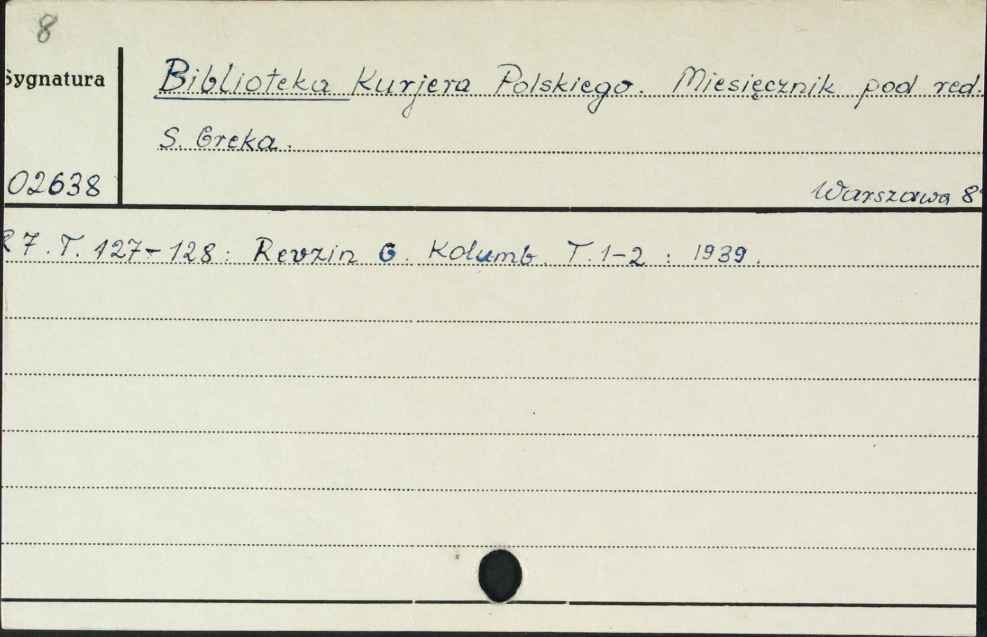 8
Sygnatura
Biblioteka Kurjera Polskiego. Miesięcznik pod red.
S. Greka.
02638
Warszawa 8°
R 7. T. 127-128: Revzin G. Kolumb. T. 1-2 : 1939.